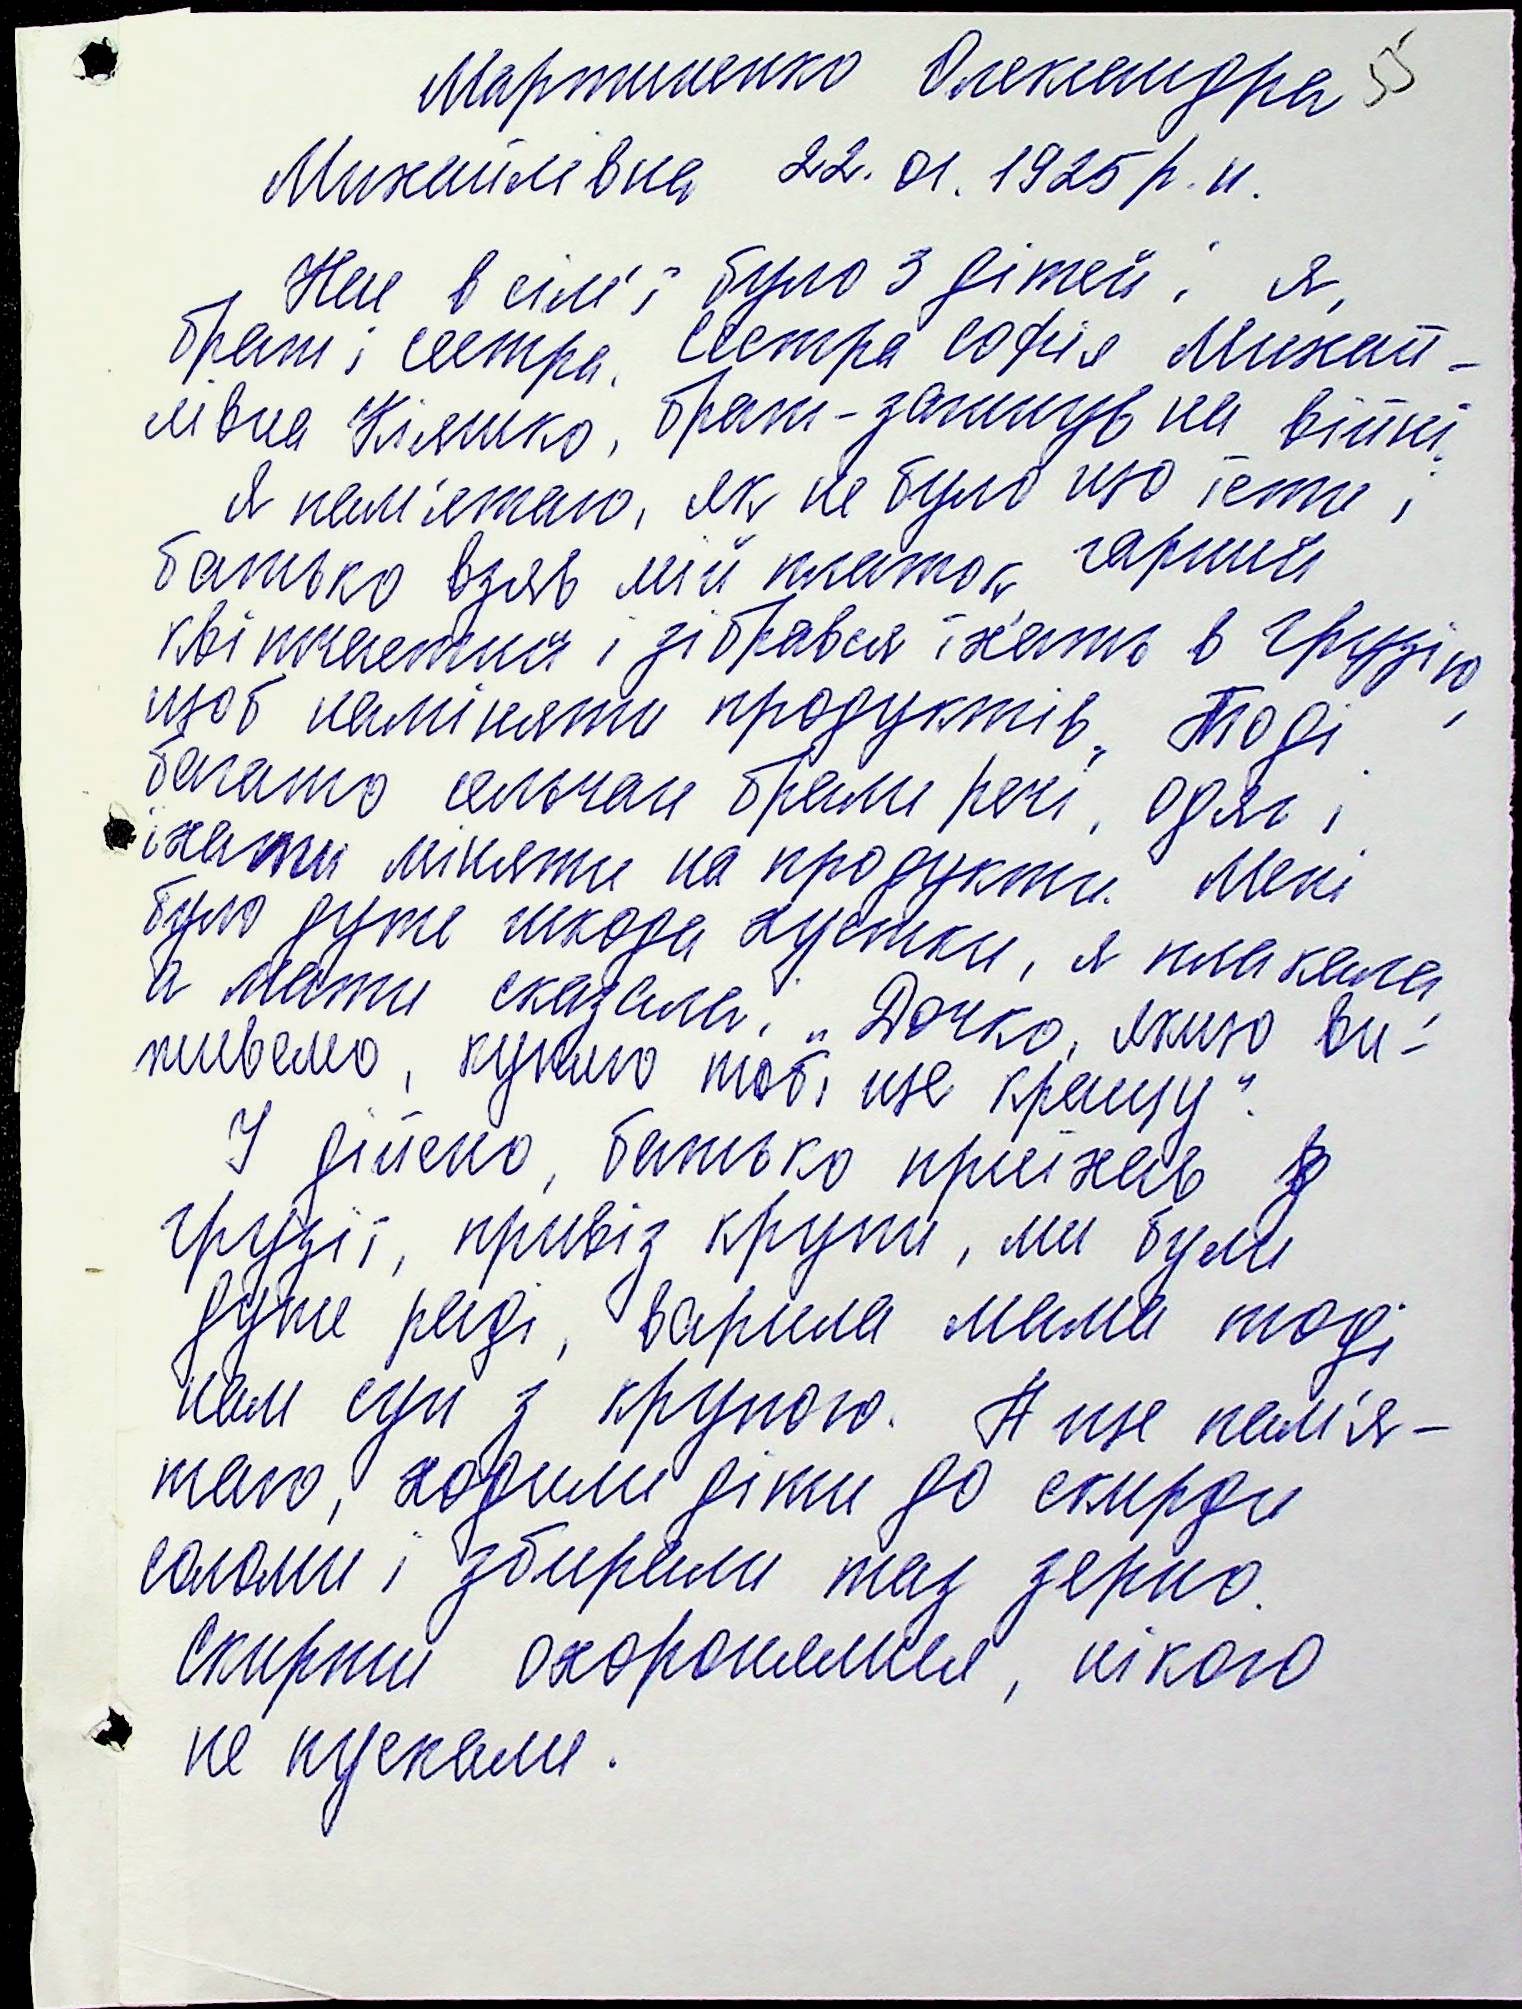 Мартиненко Олександра 55
Михайлівна 22.01.1925 р.н.
Нас в сім'ї було 3 дітей: я,
брат і сестра. Сестра Софія Михай-
лівна Кіяшко, брат - загинув на війні.
Я пам'ятаю, як не було що їсти і
батько взяв мій платок гарний
квітчастий і зібрався їхать в Грузію,
щоб наміняти продуктів. Тоді
багато сельчан брали речі, одяг і
їхати міняти на продукти. Мені
було дуже шкода хустки, я плакала
а мати сказала: „Дочко, якщо ви-
живемо, купимо тобі ще кращу".
І дійсно, батько приїхав з
Грузії, привіз крупи, ми були
дуже раді, варила мама тоді
нам суп з крупою. А ще пам'я-
таю, ходили діти до скирди
соломи і збирали таз зерно.
Скирти охоронялися, нікого
не пускали.